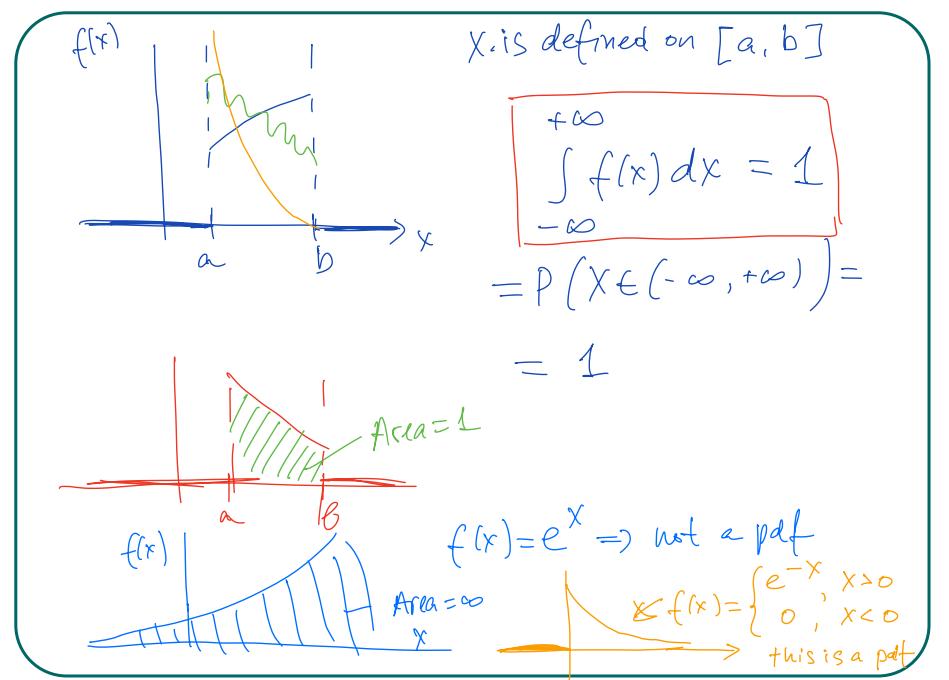 f(x)
x
a
b
X is defined on [a, b]
+∞
∫ f(x) dx = 1
-∞
= P(X ∈ (-∞, +∞)) =
= 1
Area = 1
a
b
f(x)
Area = ∞
x
f(x) = e^x ⇒ not a pdf
f(x) = { e^-x, x>0
0, x<0
this is a pdf